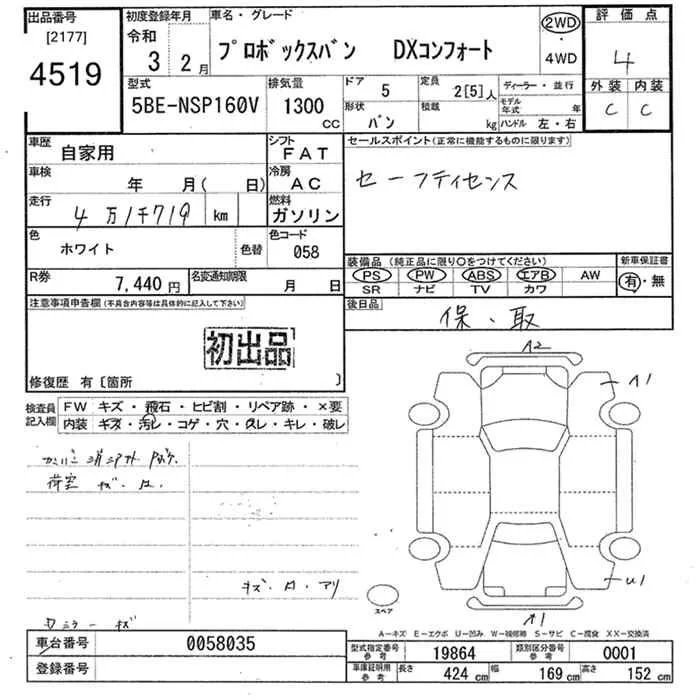 出品番号
[2177]
4519
初度登録年月
令和
3 2月
車名・グレード
プロボックスバン DXコンフォート
2WD
・
4WD
評価点
4
外装 内装
C C
型式
5BE-NSP160V
排気量
1300
CC
ドア
5
定員
2[5]人
ディーラー・並行
形状
バン
積載
kg
モデル年式 年
ハンドル 左・右
車歴
自家用
シフト
FAT
車検
年 月( 日)
冷房
AC
走行
4万1千719 km
燃料
ガソリン
色
ホワイト
色替
色コード
058
R券
7,440円
名変通知期限
月 日
セールスポイント(正常に機能するものに限ります)
セーフティセンス
装備品(純正品に限り○をつけてください)
PS PW ABS エアB AW
SR ナビ TV カワ
新車保証書
有・無
後日品
保・取
注意事項申告欄(不具合内容等は具体的に記入して下さい)
初出品
修復歴 有〔箇所 〕
検査員
記入欄
FW キズ・飛石・ヒビ割・リペア跡・×要
内装 キズ・汚レ・コゲ・穴・スレ・キレ・破レ
荷室 キズ・
キズ・ ・アリ
ミラー キズ
A2
A1
U1
A1
スペア
A－キズ E－エクボ U－凹み W－補修跡 S－サビ C－腐食 XX－交換済
車台番号
0058035
登録番号
型式指定番号
参考
19864
類別区分番号
参考
0001
車庫証明用
参考
長さ 424 cm 幅 169 cm 高さ 152 cm